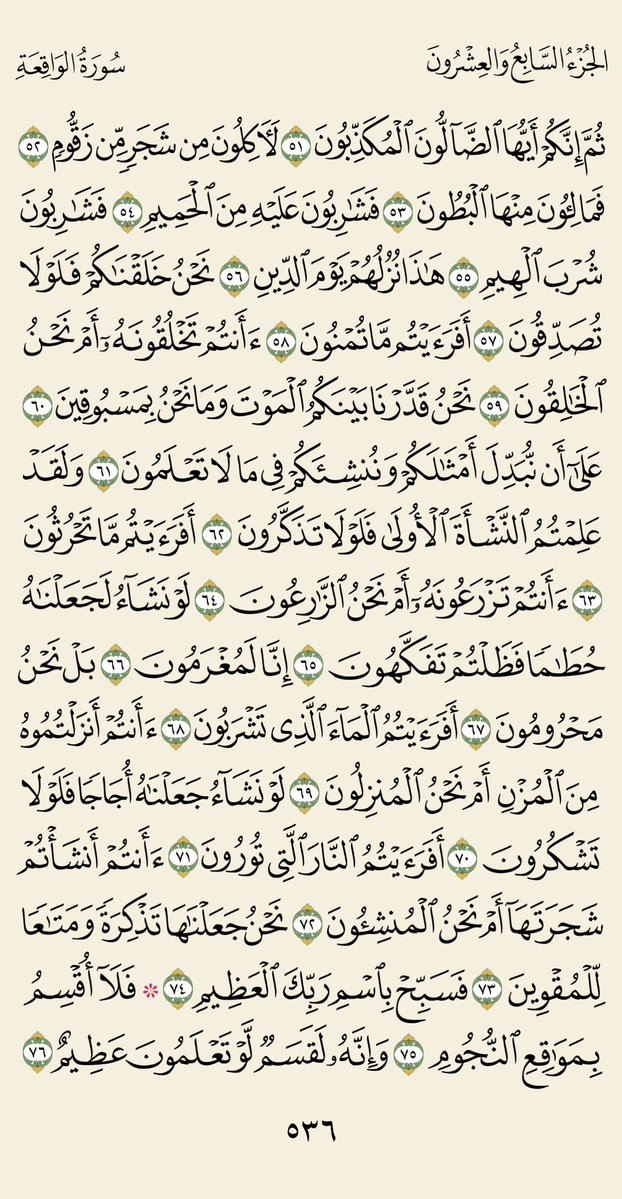 الجُزْءُ السَّابِعُ وَالعِشْرُونَ سُورَةُ الوَاقِعَةِ
ثُمَّ إِنَّكُمْ أَيُّهَا ٱلضَّآلُّونَ ٱلْمُكَذِّبُونَ ٥١ لَأٓكِلُونَ مِن شَجَرٍ مِّن زَقُّومٍ ٥٢
فَمَالِـُٔونَ مِنْهَا ٱلْبُطُونَ ٥٣ فَشَٰرِبُونَ عَلَيْهِ مِنَ ٱلْحَمِيمِ ٥٤ فَشَٰرِبُونَ
شُرْبَ ٱلْهِيمِ ٥٥ هَٰذَا نُزُلُهُمْ يَوْمَ ٱلدِّينِ ٥٦ نَحْنُ خَلَقْنَٰكُمْ فَلَوْلَا
تُصَدِّقُونَ ٥٧ أَفَرَءَيْتُم مَّا تُمْنُونَ ٥٨ ءَأَنتُمْ تَخْلُقُونَهُۥٓ أَمْ نَحْنُ
ٱلْخَٰلِقُونَ ٥٩ نَحْنُ قَدَّرْنَا بَيْنَكُمُ ٱلْمَوْتَ وَمَا نَحْنُ بِمَسْبُوقِينَ ٦٠
عَلَىٰٓ أَن نُّبَدِّلَ أَمْثَٰلَكُمْ وَنُنشِئَكُمْ فِى مَا لَا تَعْلَمُونَ ٦١ وَلَقَدْ
عَلِمْتُمُ ٱلنَّشْأَةَ ٱلْأُولَىٰ فَلَوْلَا تَذَكَّرُونَ ٦٢ أَفَرَءَيْتُم مَّا تَحْرُثُونَ
٦٣ ءَأَنتُمْ تَزْرَعُونَهُۥٓ أَمْ نَحْنُ ٱلزَّٰرِعُونَ ٦٤ لَوْ نَشَآءُ لَجَعَلْنَٰهُ
حُطَٰمًا فَظَلْتُمْ تَفَكَّهُونَ ٦٥ إِنَّا لَمُغْرَمُونَ ٦٦ بَلْ نَحْنُ
مَحْرُومُونَ ٦٧ أَفَرَءَيْتُمُ ٱلْمَآءَ ٱلَّذِى تَشْرَبُونَ ٦٨ ءَأَنتُمْ أَنزَلْتُمُوهُ
مِنَ ٱلْمُزْنِ أَمْ نَحْنُ ٱلْمُنزِلُونَ ٦٩ لَوْ نَشَآءُ جَعَلْنَٰهُ أُجَاجًا فَلَوْلَا
تَشْكُرُونَ ٧٠ أَفَرَءَيْتُمُ ٱلنَّارَ ٱلَّتِى تُورُونَ ٧١ ءَأَنتُمْ أَنشَأْتُمْ
شَجَرَتَهَآ أَمْ نَحْنُ ٱلْمُنشِـُٔونَ ٧٢ نَحْنُ جَعَلْنَٰهَا تَذْكِرَةً وَمَتَٰعًا
لِّلْمُقْوِينَ ٧٣ فَسَبِّحْ بِٱسْمِ رَبِّكَ ٱلْعَظِيمِ ٧٤ * فَلَآ أُقْسِمُ
بِمَوَٰقِعِ ٱلنُّجُومِ ٧٥ وَإِنَّهُۥ لَقَسَمٌ لَّوْ تَعْلَمُونَ عَظِيمٌ ٧٦
٥٣٦